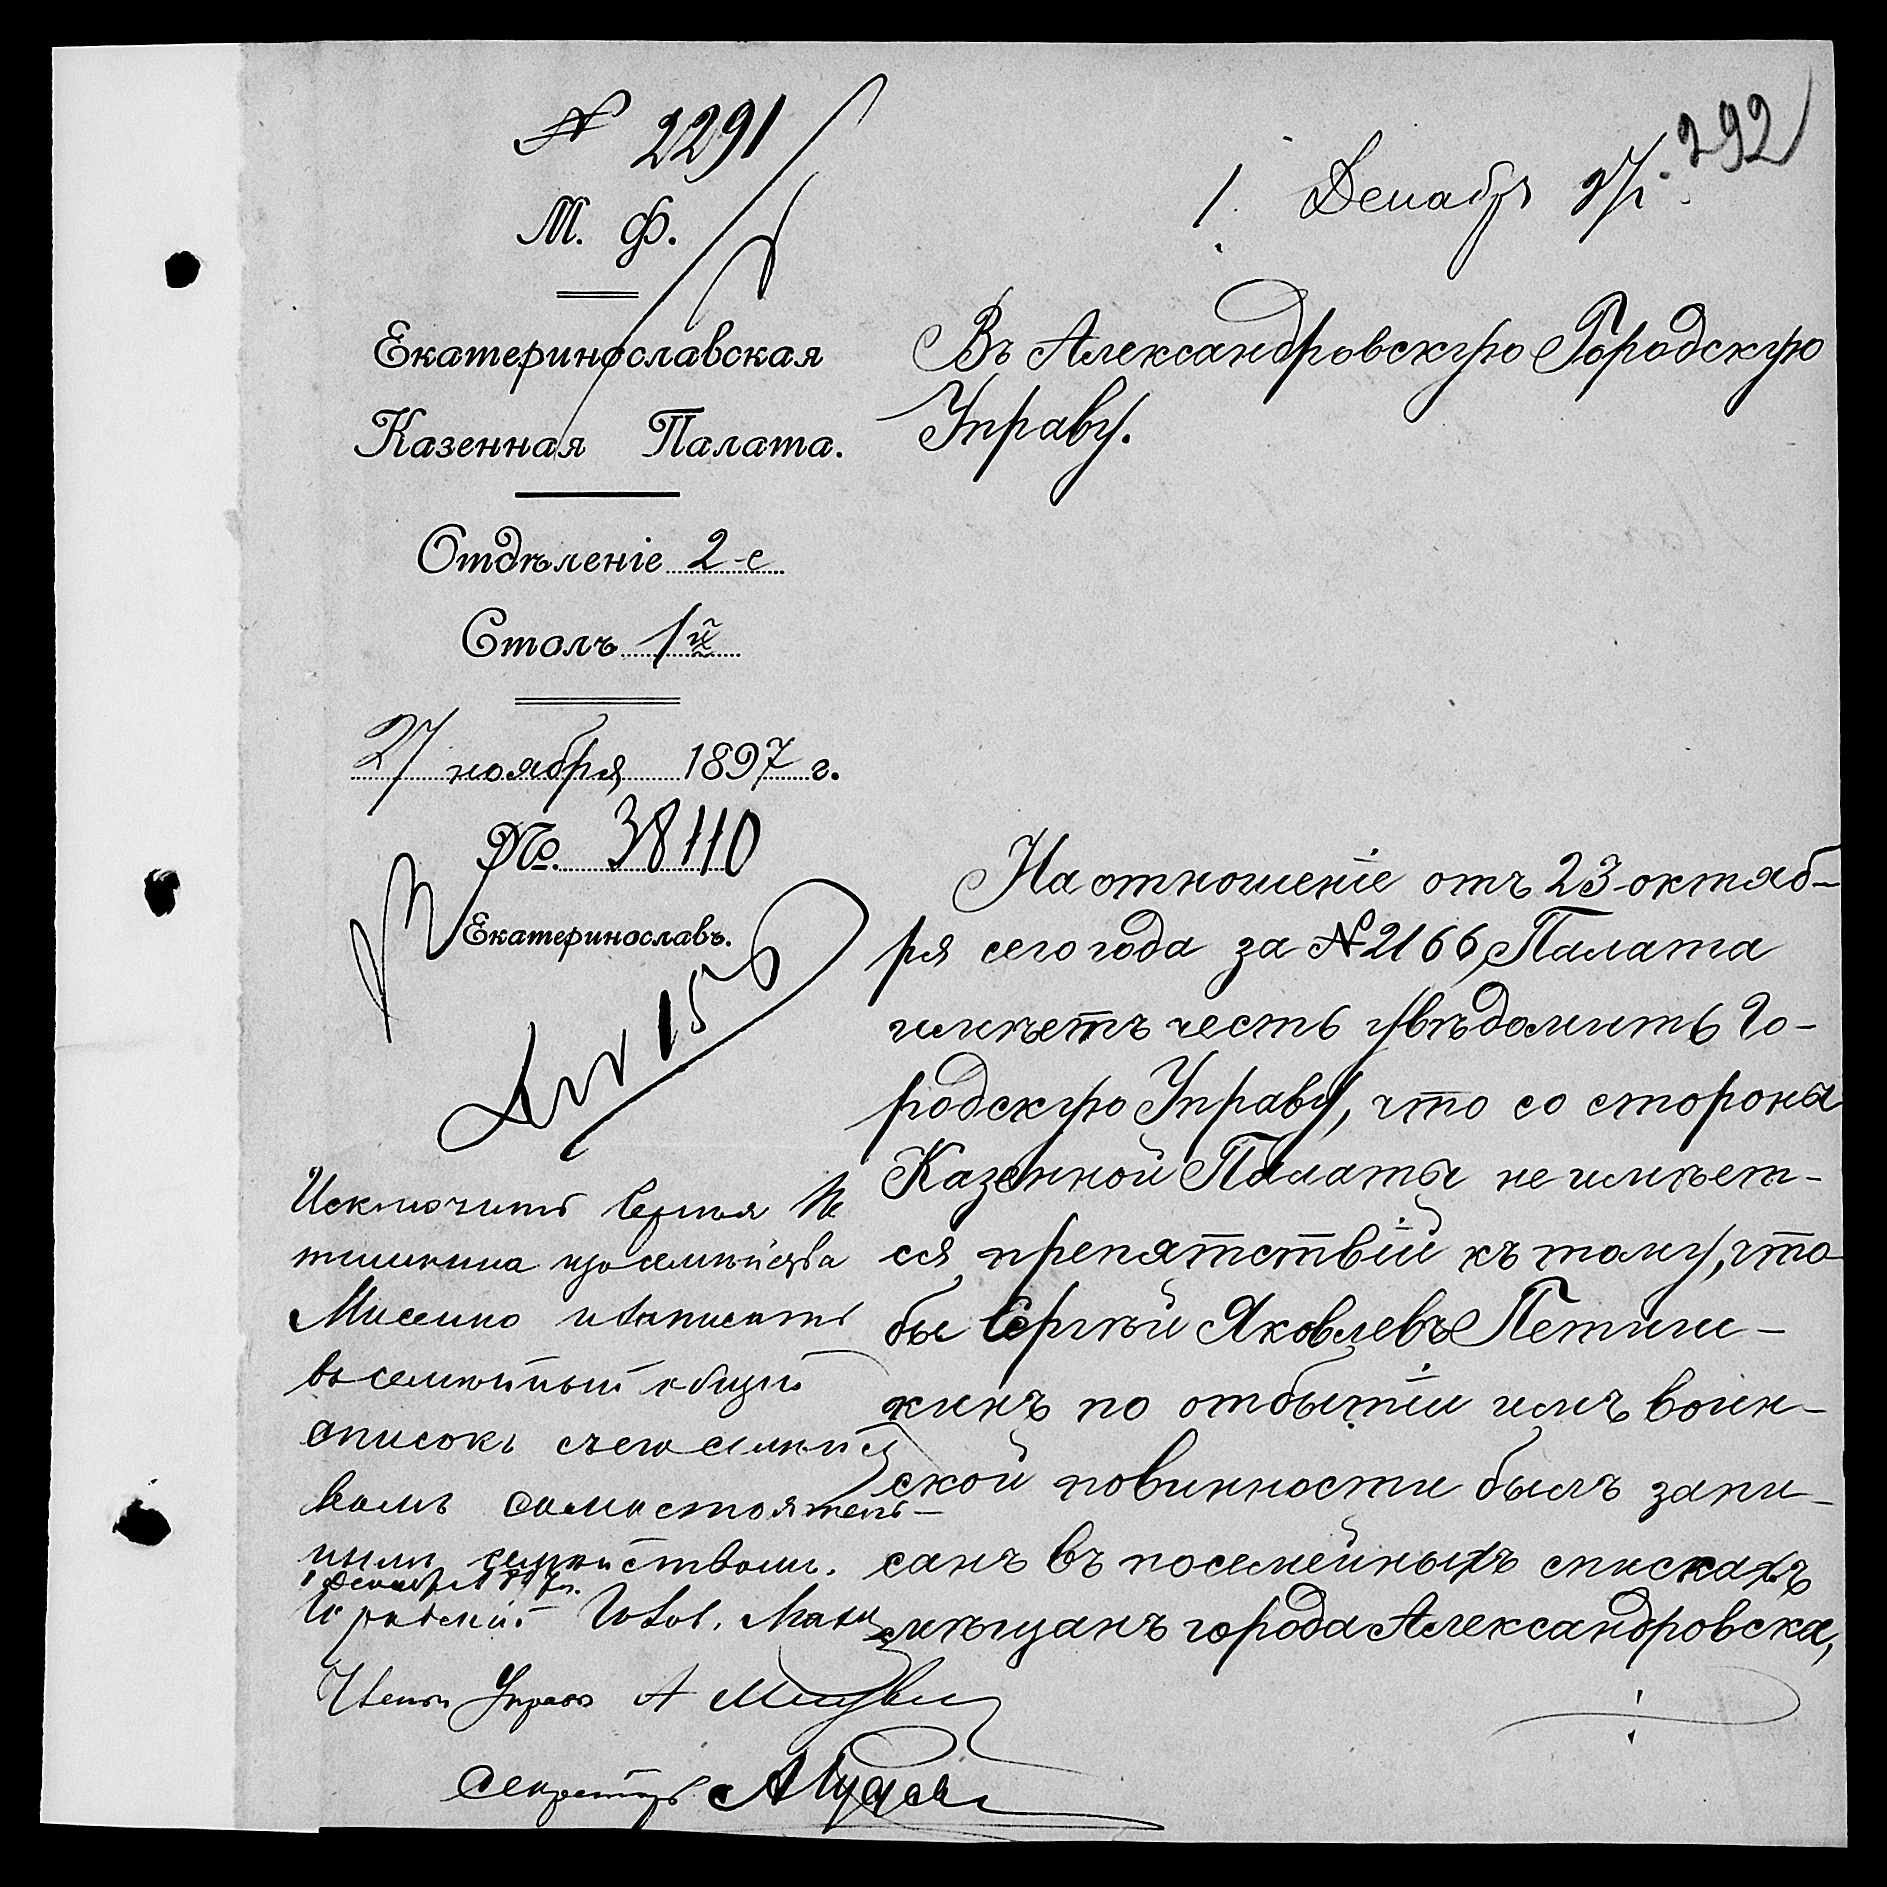 № 2291
М. Ф.
Екатеринославская
Казенная Палата.
Отдѣленіе 2-е
Столъ 1й
27 ноября 1897 г.
№ 38110
Екатеринославъ.
292
1. Декабря 97г.
Въ Александровскую Городскую
Управу.
На отношеніе отъ 23 октяб-
ря сего года за №2166, Палата
имѣетъ честь увѣдомить Го-
родскую Управу, что со стороны
Казенной Палаты не имѣет-
ся препятствій къ тому, что
бы Сергѣй Яковлевъ Петиш-
кинъ по отбытіи имъ воин-
ской повинности былъ запи-
санъ въ посемейныхъ спискахъ
мѣщанъ города Александровска,
Исключить Сергѣя Пе
тишкина изъ семейства
и вписать
въ семейный общій
списокъ съ его семейст
вомъ самостоятель-
нымъ семействомъ.
1 декабря 1897г.
Городской Голов.
Членъ Управы А
Секретарь